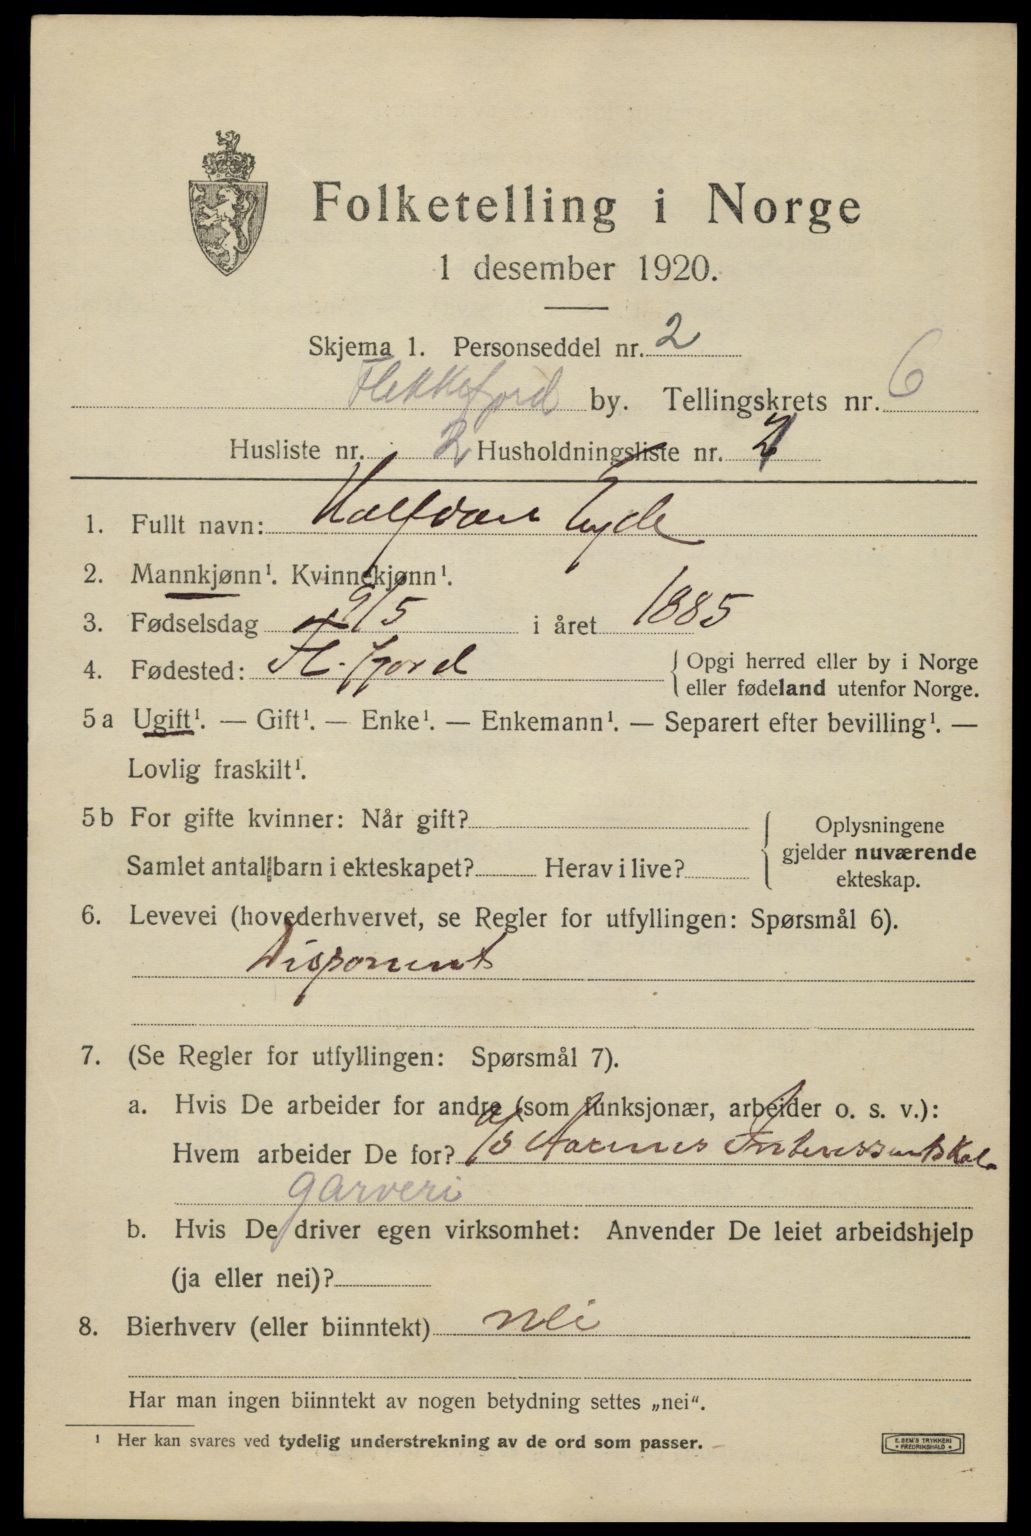 Folketelling i Norge
1 desember 1920.
Skjema 1. Personseddel nr. 2
Flekkefjord by. Tellingskrets nr. 6
Husliste nr. 2 Husholdningsliste nr. 2
1. Fullt navn: Halfdan Eyde
2. Mannkjønn¹. Kvinnekjønn¹.
3. Fødselsdag 9/5 i året 1885
4. Fødested: Fl.fjord { Opgi herred eller by i Norge
eller fødeland utenfor Norge.
5a Ugift¹. — Gift¹. — Enke¹. — Enkemann¹. — Separert efter bevilling¹. —
Lovlig fraskilt¹.
5b For gifte kvinner: Når gift?
Samlet antall barn i ekteskapet? Herav i live?
Oplysningene
gjelder nuværende
ekteskap.
6. Levevei (hovederhvervet, se Regler for utfyllingen: Spørsmål 6).
Disponent
7. (Se Regler for utfyllingen: Spørsmål 7).
a. Hvis De arbeider for andre (som funksjonær, arbeider o. s. v.):
Hvem arbeider De for? A/S Aarnes
garveri
b. Hvis De driver egen virksomhet: Anvender De leiet arbeidshjelp
(ja eller nei)?
8. Bierhverv (eller biinntekt) nei
Har man ingen biinntekt av nogen betydning settes „nei“.
¹ Her kan svares ved tydelig understrekning av de ord som passer.
E. SEM'S TRYKKERI
• FREDRIKSHALD •